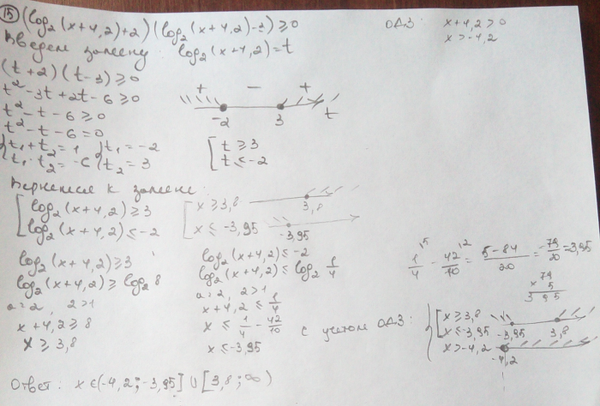 15 (log₂(x+4,2)+2)(log₂(x+4,2)-3)≥0
ОДЗ: x+4,2>0
x>-4,2
Введем замену: log₂(x+4,2)=t
(t+2)(t-3)≥0
t²-3t+2t-6≥0
t²-t-6≥0
t²-t-6=0
{t₁+t₂=1 {t₁=-2
t₁·t₂=-6 t₂=3
+ - +
-2 3 t
[t≥3
t≤-2
Вернемся к замене:
[log₂(x+4,2)≥3
log₂(x+4,2)≤-2
[x≥3,8 3,8
x≤-3,95 -3,95
log₂(x+4,2)≥3
log₂(x+4,2)≥log₂8
a=2, 2>1
x+4,2≥8
x≥3,8
log₂(x+4,2)≤-2
log₂(x+4,2)≤log₂ 1/4
a=2, 2>1
x+4,2≤1/4
x≤1/4-42/10
x≤-3,95
1/4 - 42/10 = 5-84/20 = -79/20 = 3,95
79
× 5
395
с учетом ОДЗ: {[x≥3,8
x≤-3,95 -3,95 3,8
x>-4,2 -4,2
Ответ: x∈(-4,2;-3,95]∪[3,8;∞)